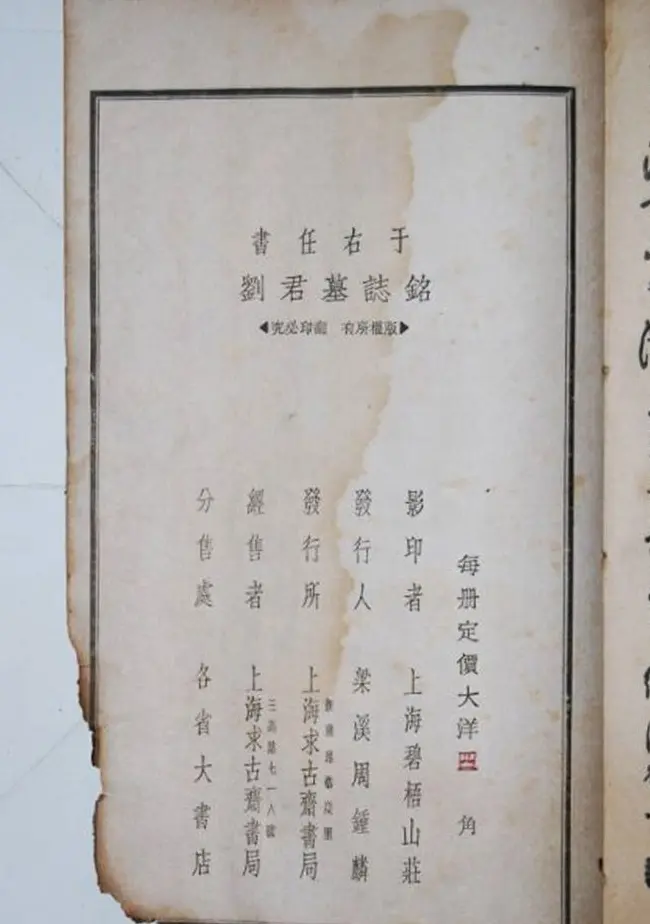 于右任書
劉君墓誌銘
版權所有 翻印必究
每册定價大洋 角
影印者 上海碧梧山莊
發行人 梁溪周鍾麟
發行所 上海求古齋書局
經售者 上海求古齋書局
三馬路七一八號
分售處 各省大書店